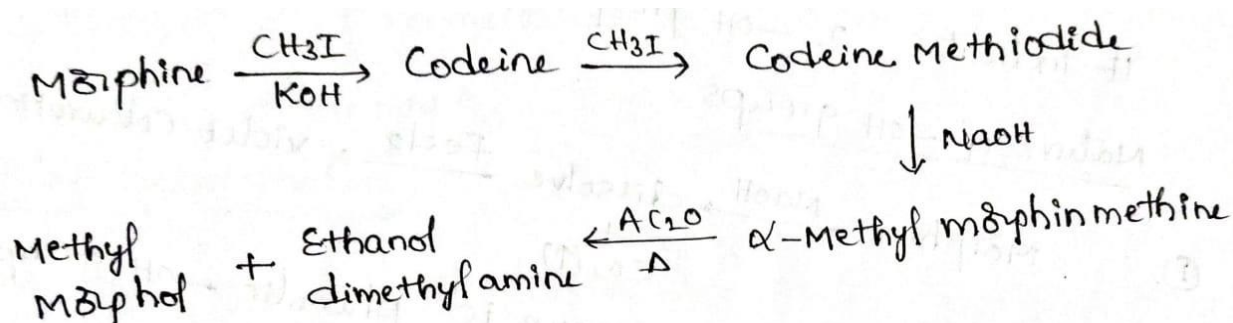 Morphine CH3I KOH Codeine CH3I Codeine Methiodide
NaOH
Methyl Morphol + Ethanol dimethylamine AC2O Δ α-Methyl morphinmethine